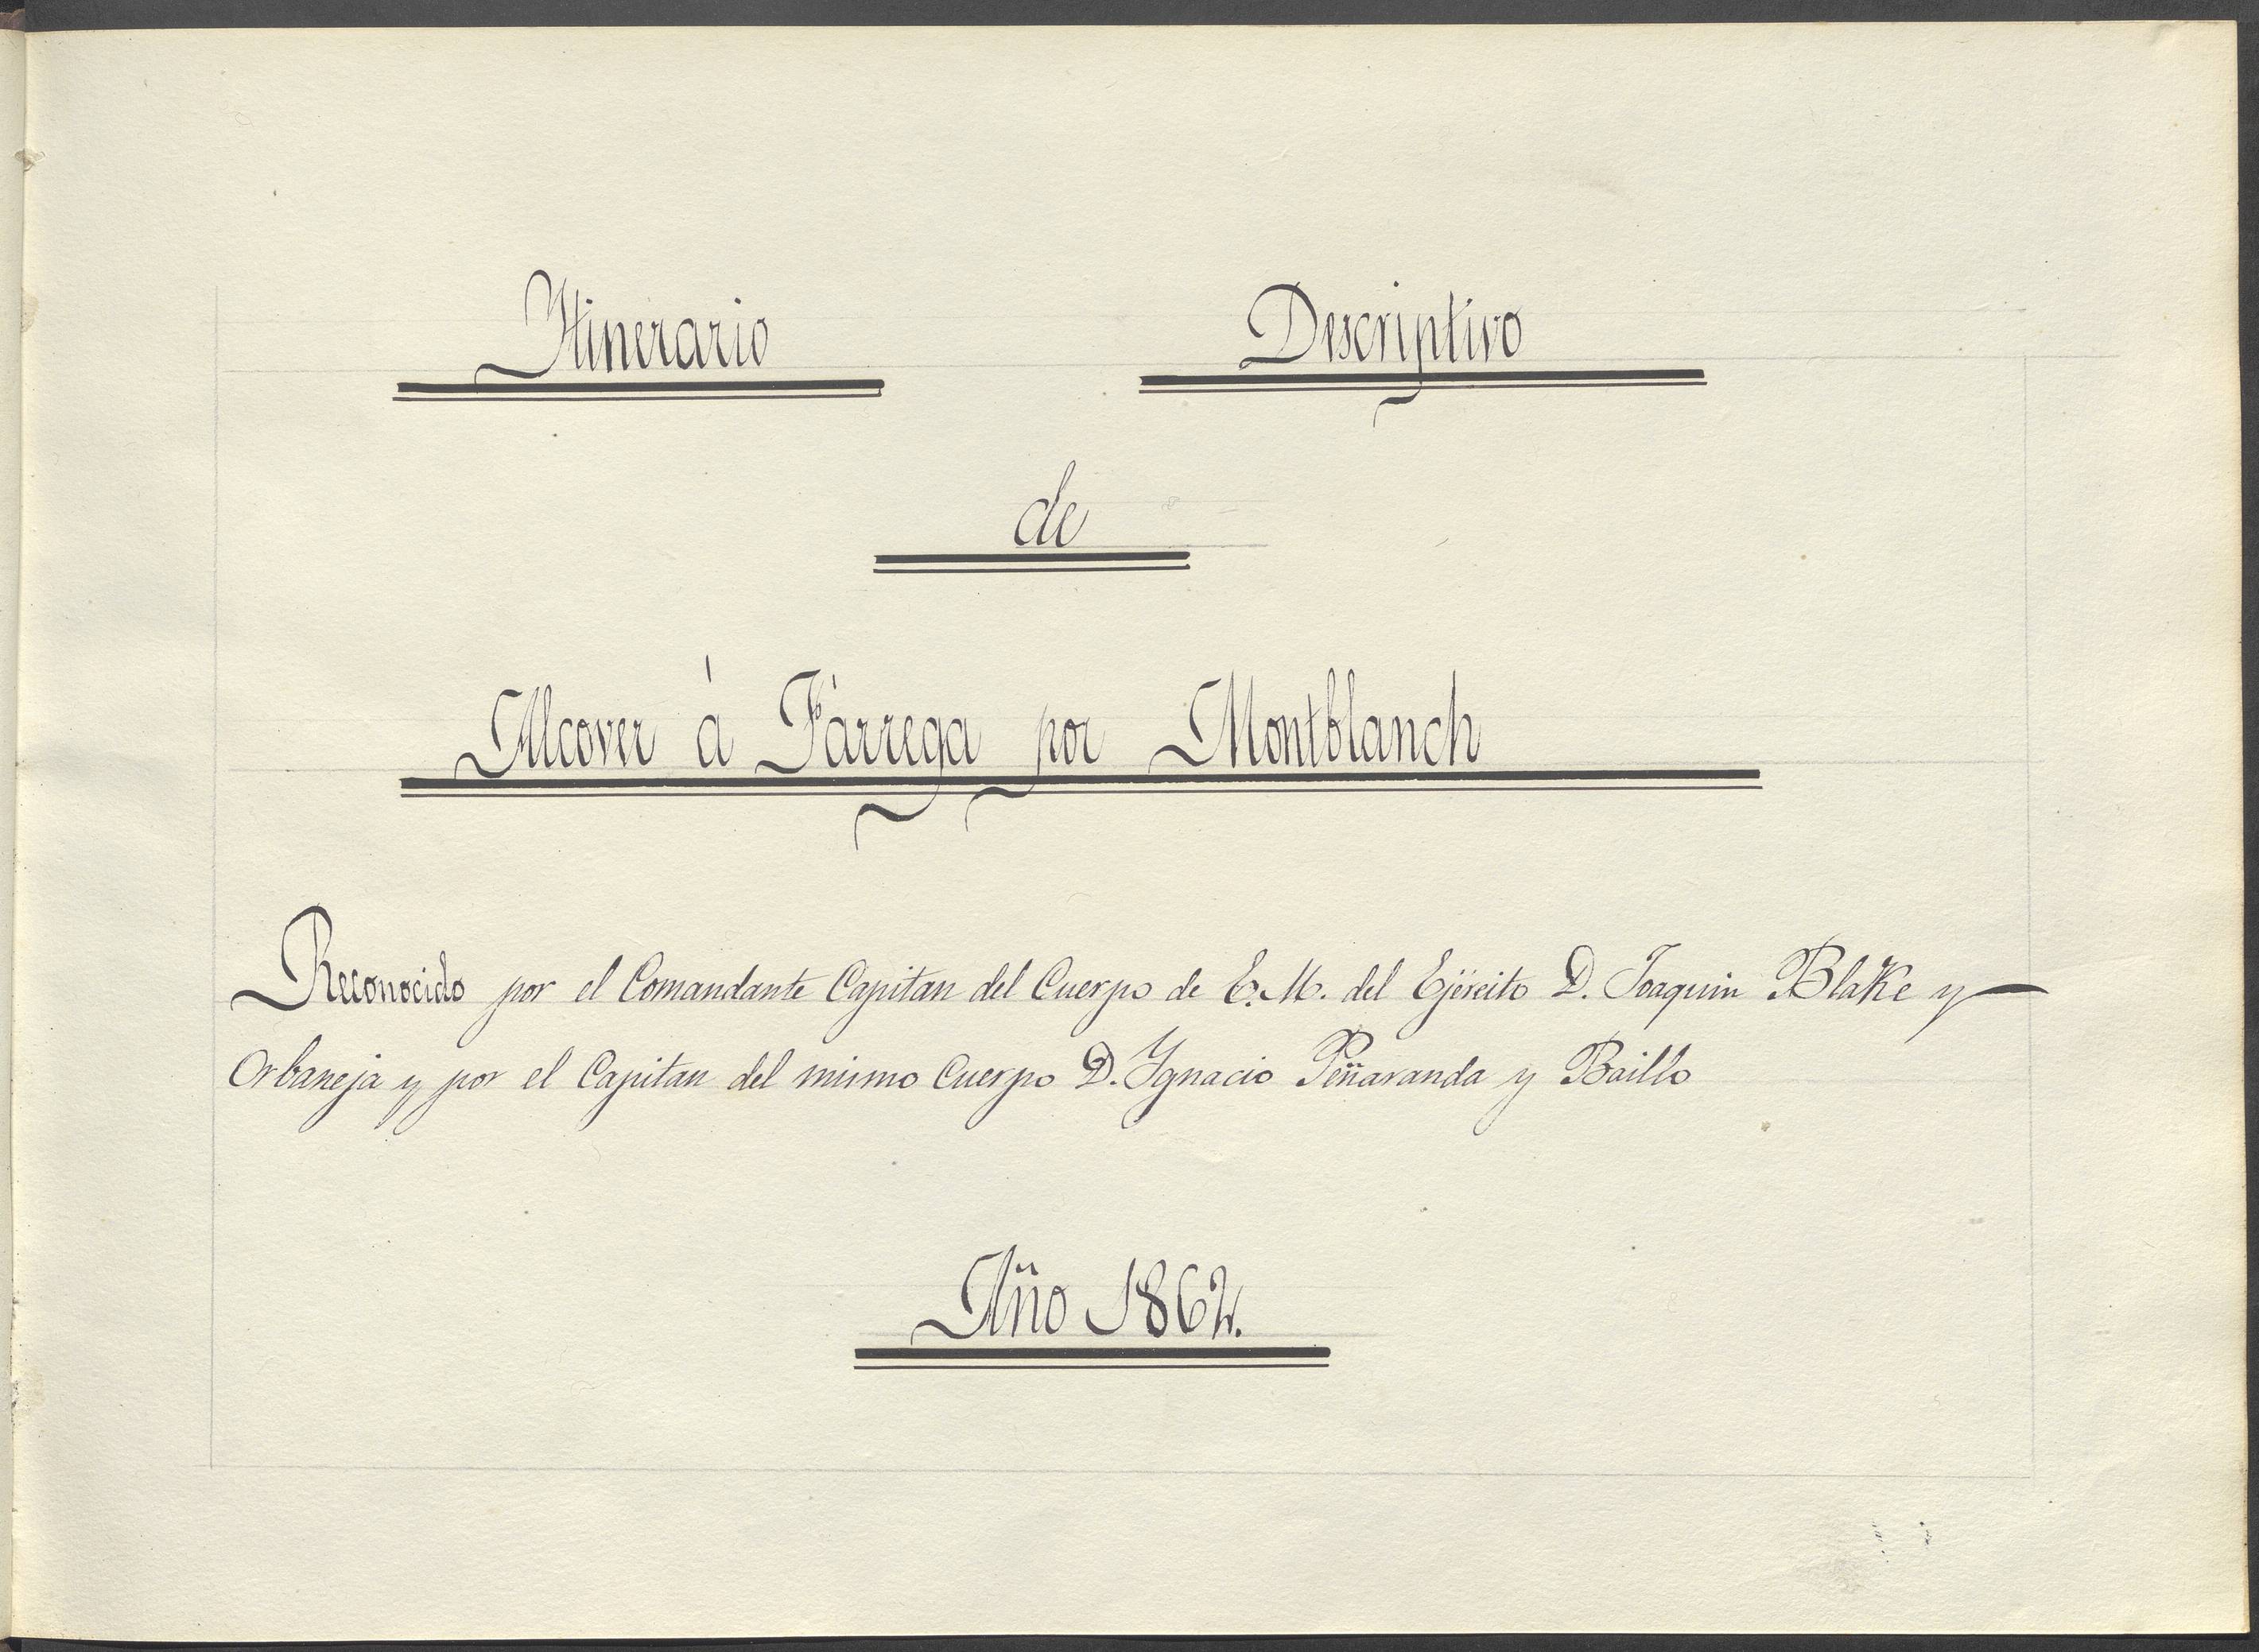 Itinerario Descriptivo
de
Alcover á Tárrega por Montblanch
Reconocido por el Comandante Capitan del Cuerpo de E. M. del Ejército D. Joaquin Blake y
Orbaneja y por el Capitan del mismo Cuerpo D. Ygnacio Peñaranda y Baillo
Año 1862.